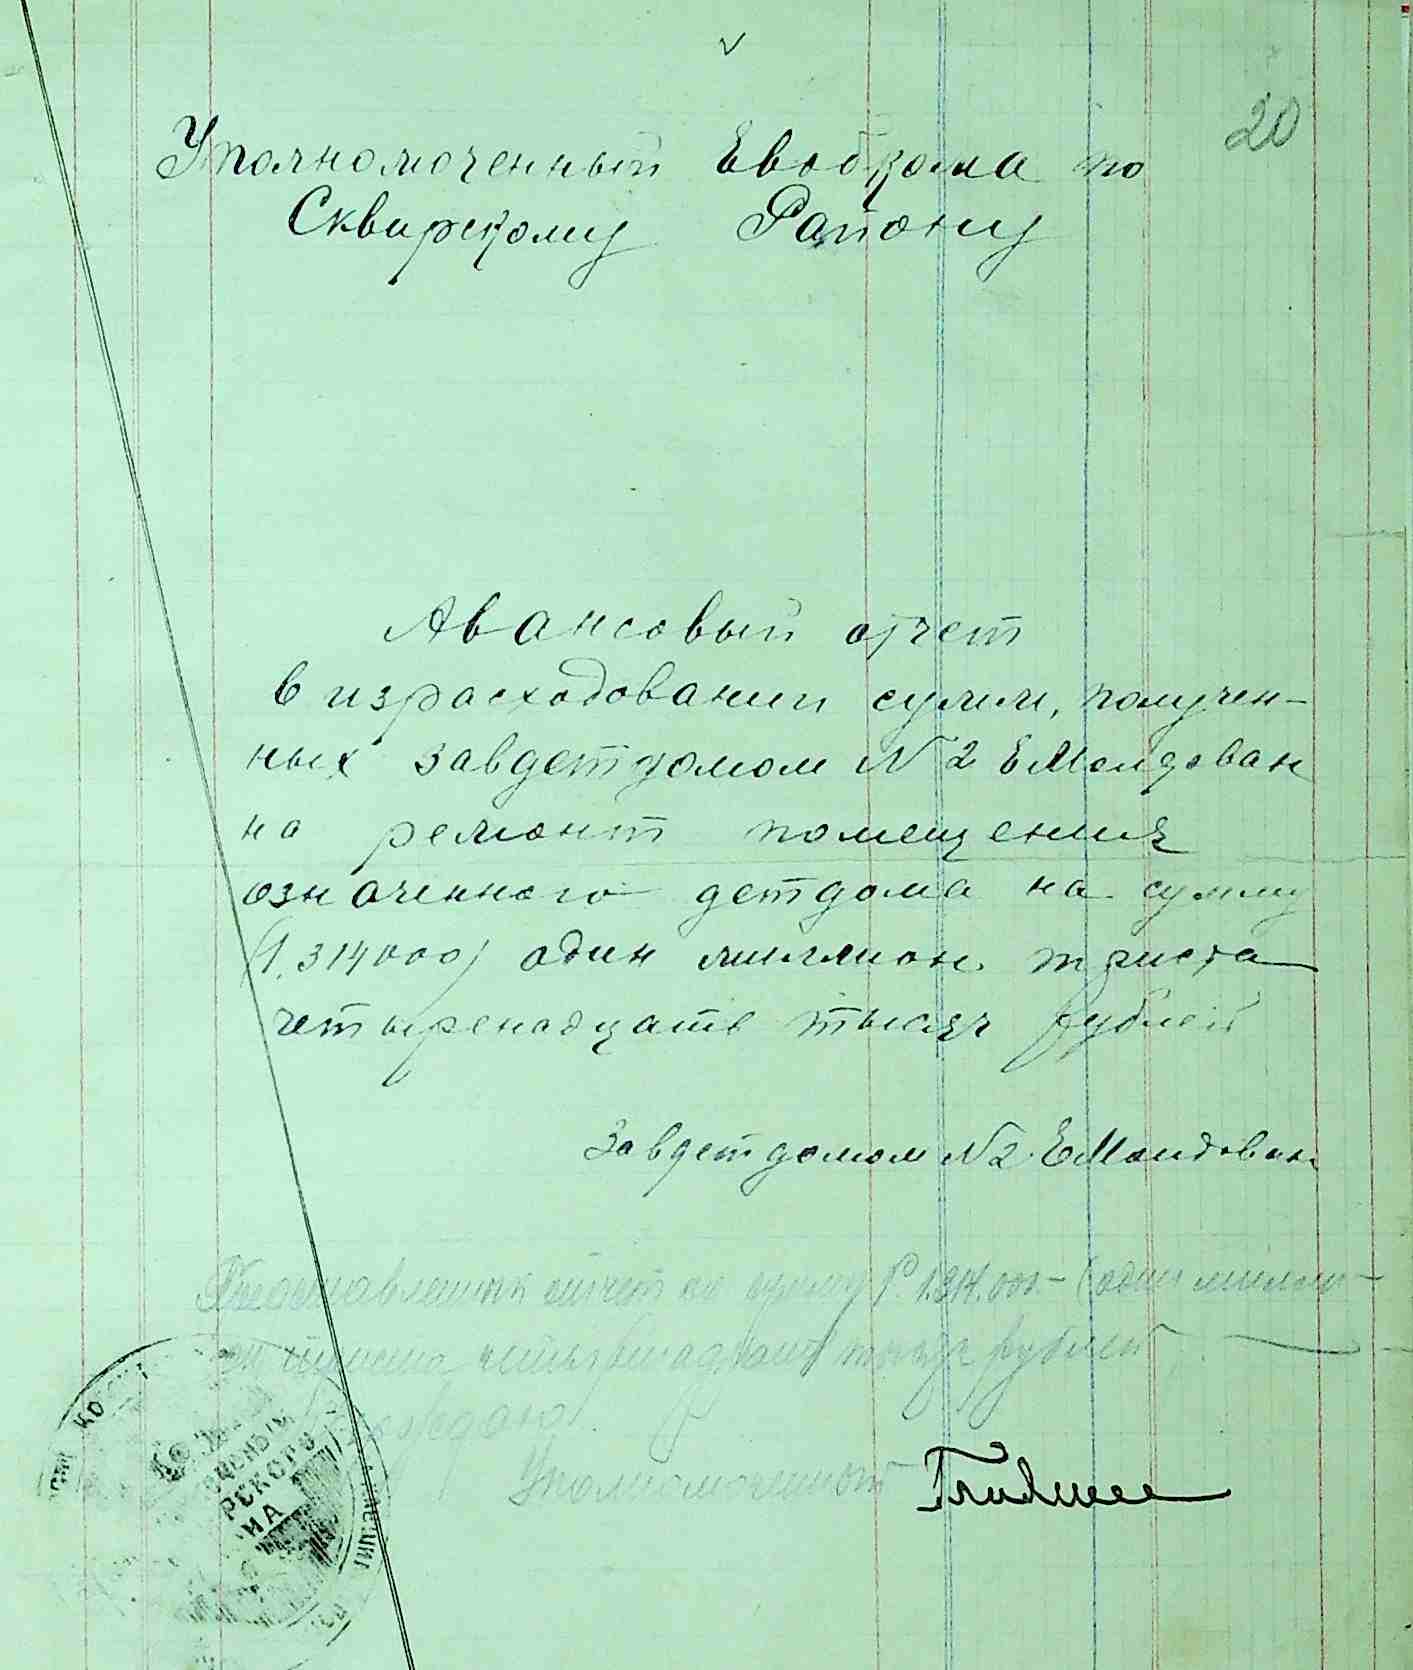 20
Уполномоченный Евобкома по
Сквирскому Району
Авансовый отчет
в израсходовании сумм, получен-
ных завдетдомом N 2 ЕМолдован
на ремонт помещения
означенного детдома на сумму
(1.314000) один миллион триста
четыренадцать тысяч рублей
Завдетдомом N2 ЕМолдован
отчет на сумму Р. 1.314.000.- (один миллі-
он триста четырнадцать тысяч рублей
Уполномоченный
РСКОГО
НА